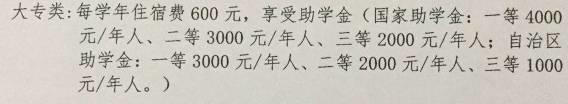 大专类:每学年住宿费 600 元，享受助学金（国家助学金：一等 4000
元/年人、二等 3000 元/年人、三等 2000 元/年人；自治区
助学金：一等 3000 元/年人、二等 2000 元/年人、三等 1000
元/年人。）